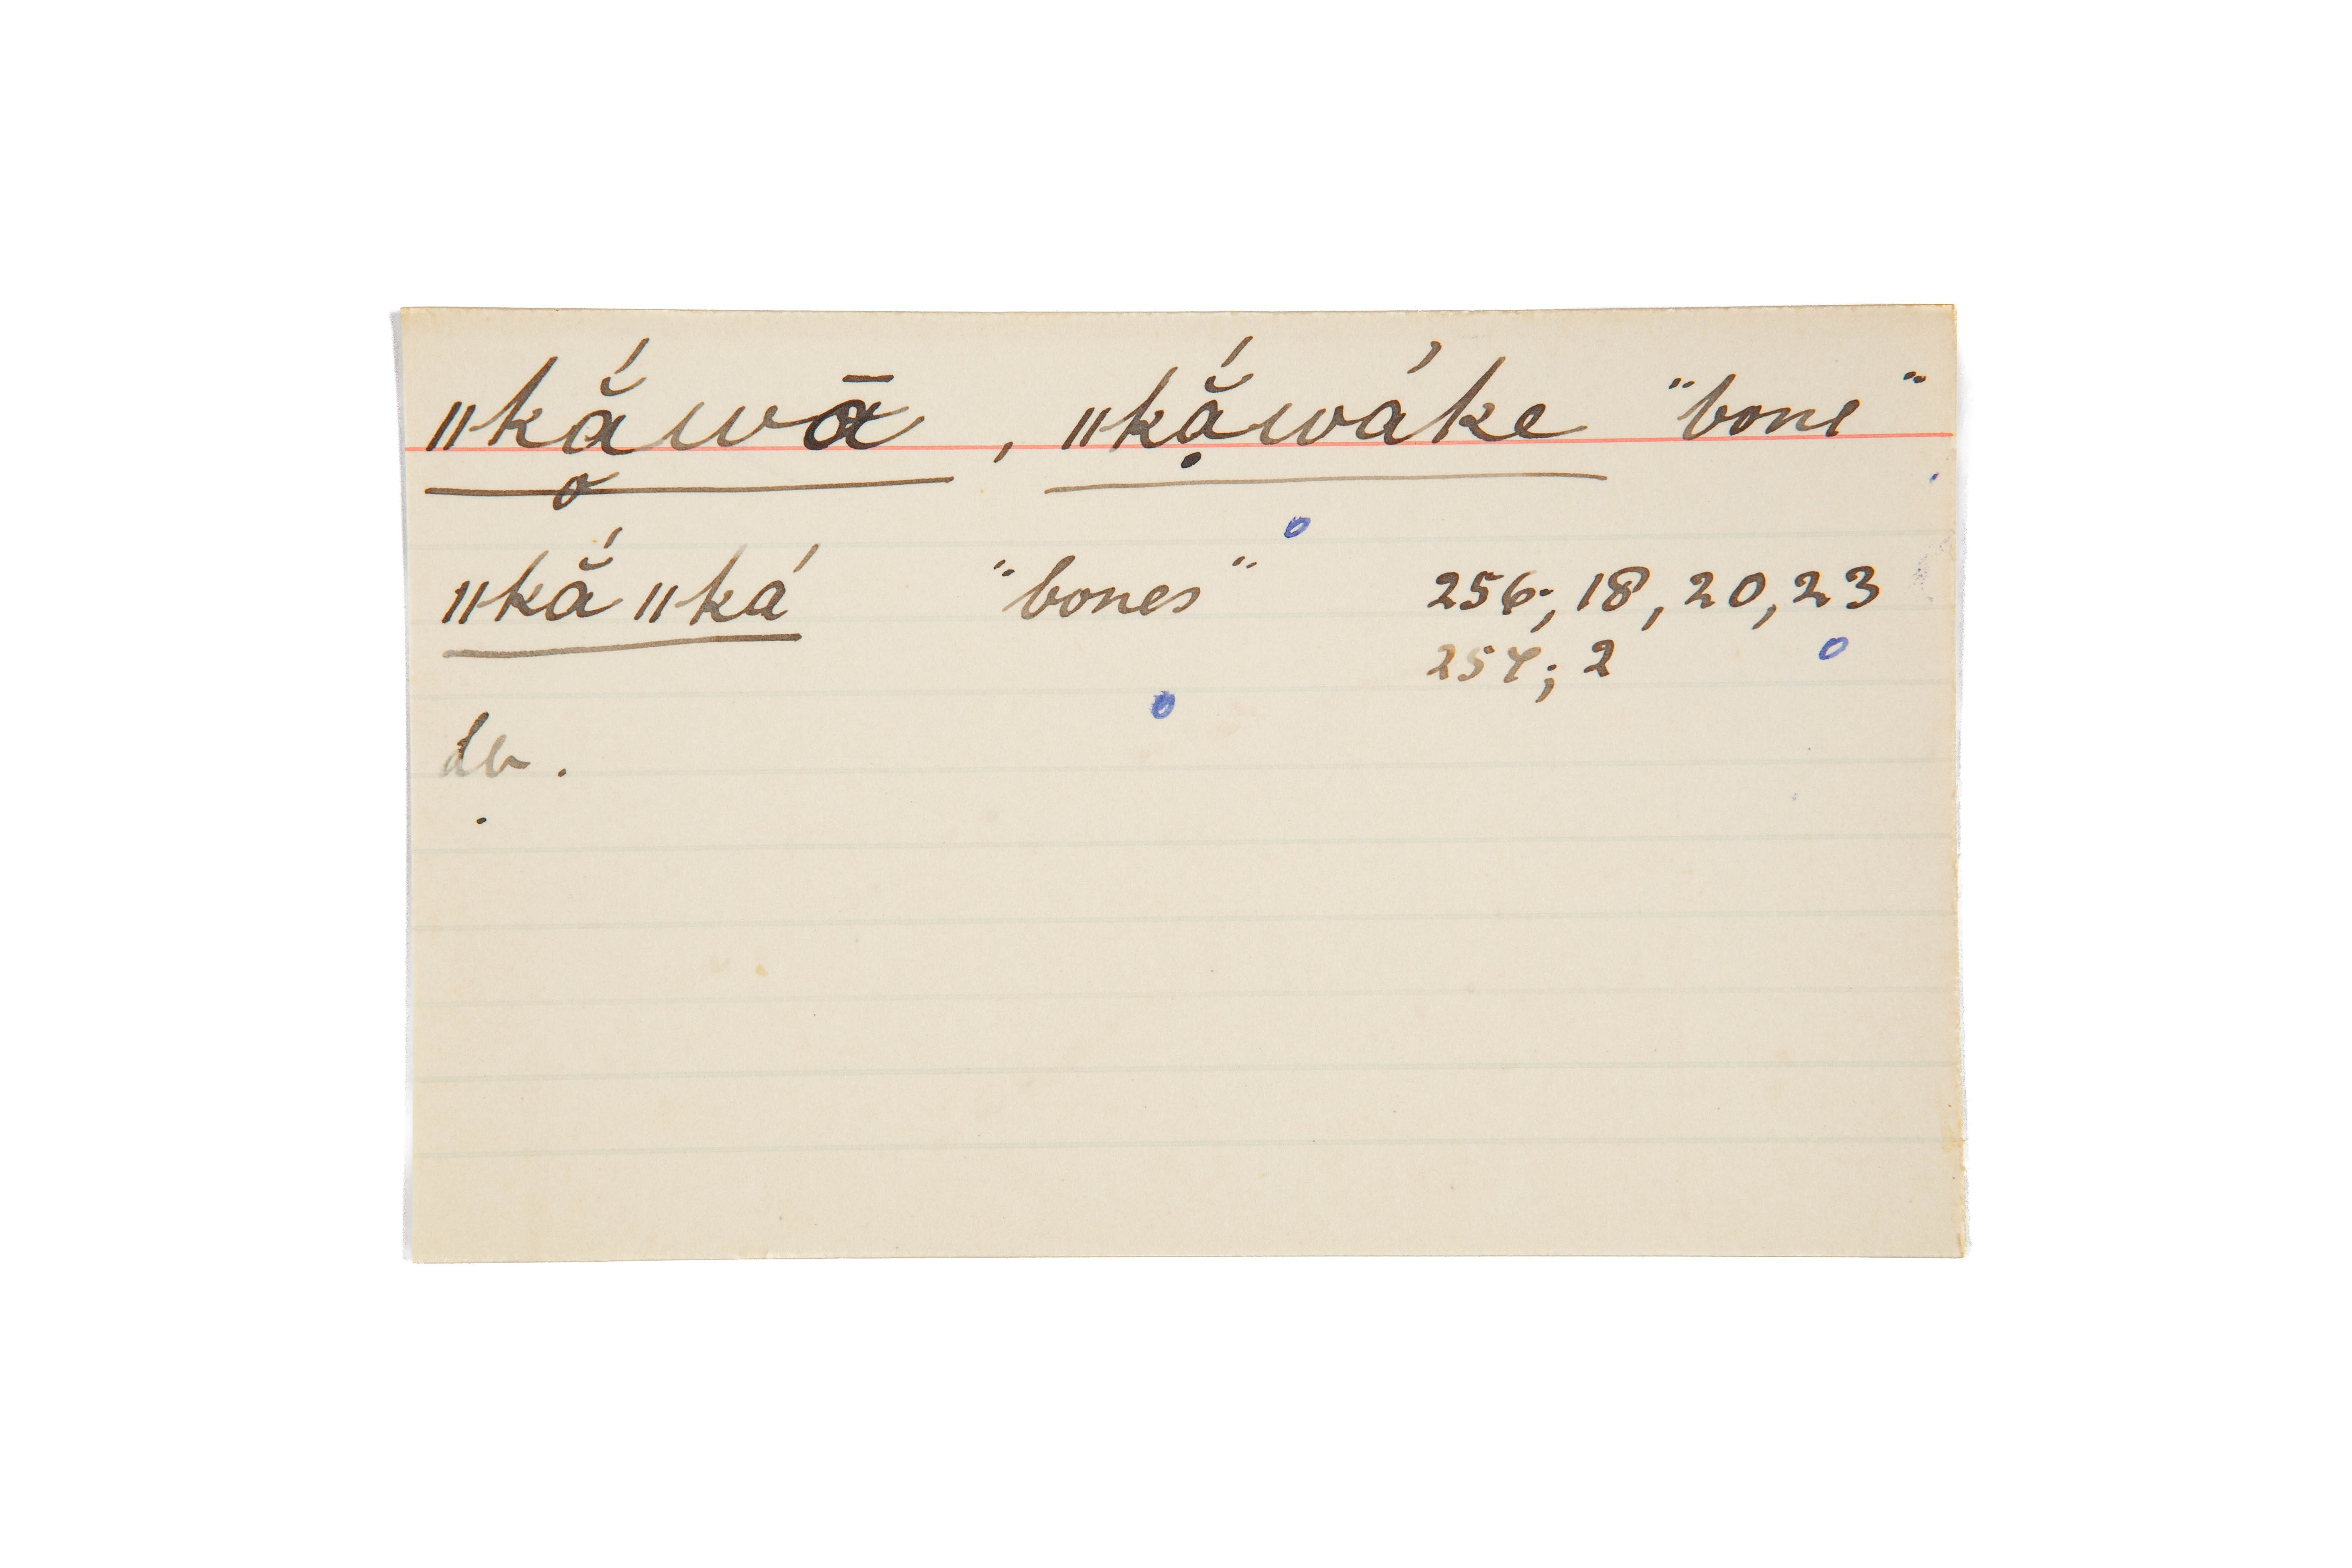 ǁkḁ̆́wā, ǁkặ́wáke "bone"
ǁkắǁká "bones" 256; 18, 20, 23
257; 2